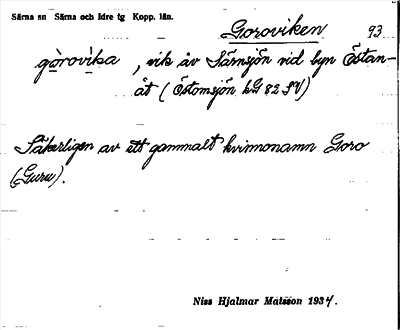 Särna sn Särna och Idre tg Kopp. län.
Goroviken 93
gòrovìka, vik av Särnsjön vid byn Östan-
åt (Östomsjön kG 82 SV)
Säkerligen av ett gammalt kvinnonamn Goro
(Guru).
Niss Hjalmar Matsson 1934.